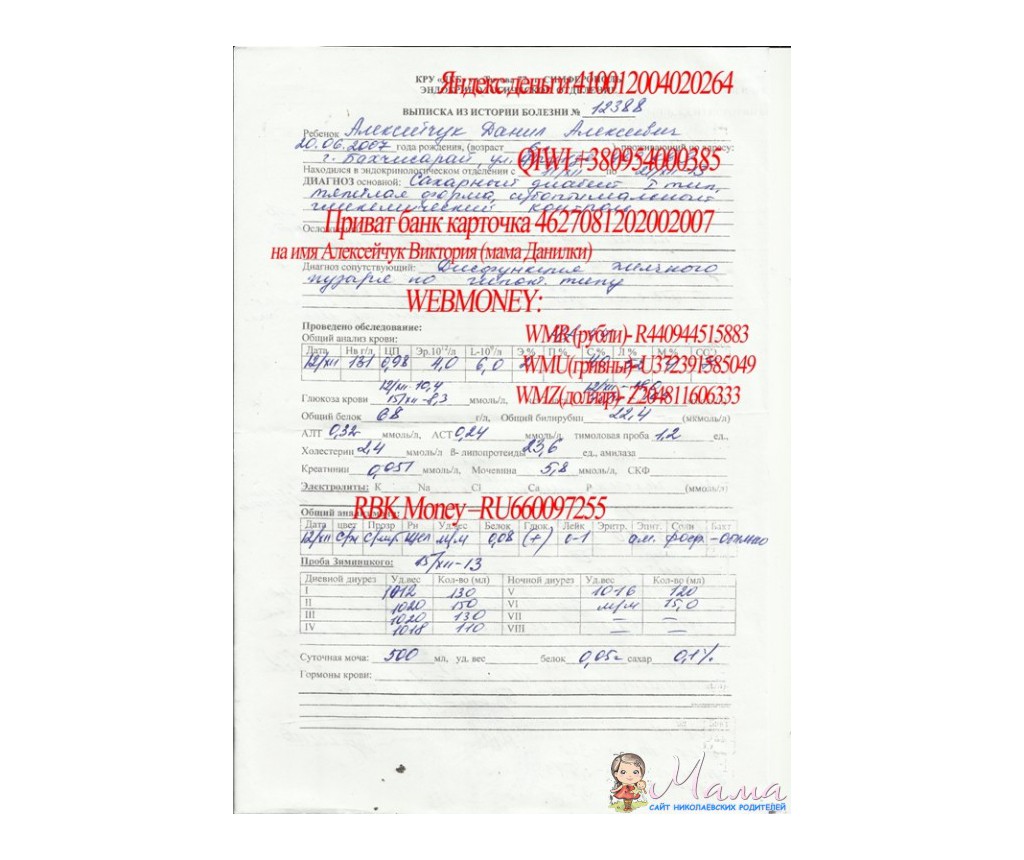 КРУ
Яндекс деньги 410012004020264
ЭНДОКРИНОЛОГИЧЕСКОЕ ОТДЕЛЕНИЕ
ВЫПИСКА ИЗ ИСТОРИИ БОЛЕЗНИ № 12388
Ребенок Алексейчук Данил Алексеевич
20.06.2007 года рождения, (возраст проживающий по адресу:
г. Бахчисарай, ул.
QIWI +380954000385
Находился в эндокринологическом отделении с по
ДИАГНОЗ основной: Сахарный диабет I тип,
тяжёлая форма, субоптимальный
гликемический контроль
Приват банк карточка 4627081202002007
на имя Алексейчук Виктория (мама Данилки)
Диагноз сопутствующий: Дисфункция желчного
пузыря по гипокт. типу
WEBMONEY:
Проведено обследование:
WMR(рубли)- R440944515883
Общий анализ крови:
Дата Нв г/л ЦП Эр.10¹²/л L-10⁹/л Э.% П.% С.% Л.% М.%
12/XII 131 0,98 4,0 6,0
WMU(гривны)-U372391585049
12/XII-10,4
Глюкоза крови 15/XII-8,3 ммоль/л,
WMZ(доллар)- Z264811606333
Общий белок 68 г/л, Общий билирубин 22,4 (мкмоль/л)
АЛТ 0,32 ммоль/л, АСТ 0,24 ммоль/л, тимоловая проба 1,2 ед.,
Холестерин 2,4 ммоль/л В- липопротеиды 23,6 ед., амилаза
Креатинин 0,051 ммоль/л, Мочевина 5,8 ммоль/л, СКФ
Электролиты: К Na Cl Ca P (ммоль/л)
RBK Money –RU660097255
Общий анализ
Дата цвет Прозр Рн Уд.вес Белок Глюк. Лейк Эритр. Эпит. Соли Бакт
12/XII м/м 0,08 (+) 0-1
Проба Зимницкого: 15/XII-13
Дневной диурез Уд.вес Кол-во (мл) Ночной диурез Уд.вес Кол-во (мл)
I 1012 130 V 1016 120
II 1020 150 VI м/м 15,0
III 1020 130 VII – –
IV 1018 110 VIII – –
Суточная моча: 500 мл, уд. вес белок 0,05 сахар 0,1%
Гормоны крови:
Мама
САЙТ НИКОЛАЕВСКИХ РОДИТЕЛЕЙ